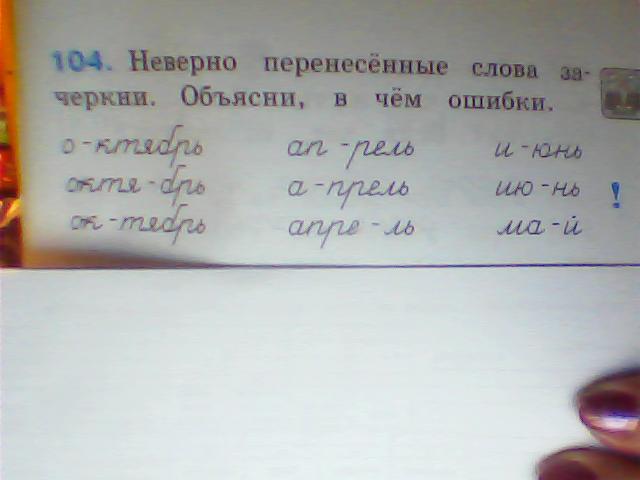 104. Неверно перенесённые слова за-
черкни. Объясни, в чём ошибки.
о-ктябрь ап-рель и-юнь
октя-брь а-прель ию-нь !
ок-тябрь апре-ль ма-й